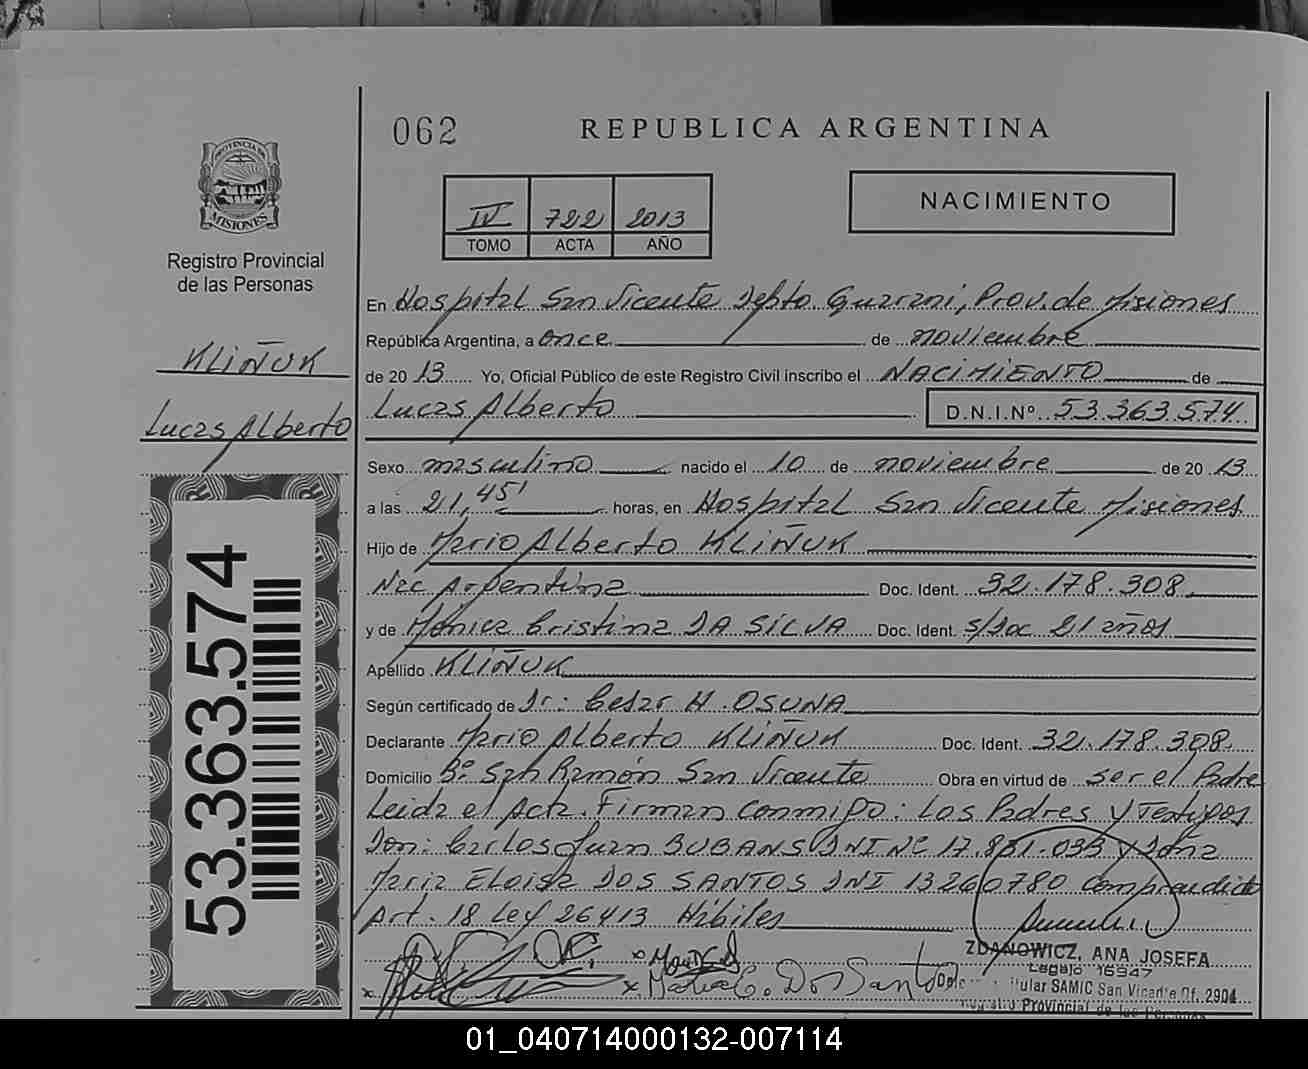 062
REPUBLICA ARGENTINA
PROVINCIA DE
MISIONES
Registro Provincial
de las Personas
IV 722 2013
TOMO ACTA AÑO
NACIMIENTO
KLIÑUK
Lucas Alberto
53.363.574
En Hospital San Vicente Depto. Guarani, Prov. de Misiones
República Argentina, a once de noviembre
de 2013 Yo, Oficial Público de este Registro Civil inscribo el NACIMIENTO de
Lucas Alberto D.N.I.Nº 53.363.574
Sexo masculino nacido el 10 de noviembre de 2013
a las 21,45' horas, en Hospital San Vicente Misiones
Hijo de Mario Alberto KLIÑUK
Nac Argentina Doc. Ident. 32.178.308
y de Mónica Cristina DA SILVA Doc. Ident. s/Doc 21 años
Apellido KLIÑUK
Según certificado de Dr: Cesar H. OSUNA
Declarante Mario Alberto KLIÑUK Doc. Ident. 32.178.308
Domicilio Bº San Ramón San Vicente Obra en virtud de ser el Padre
Leida el Acta. Firman conmigo: Los Padres y Testigos
Don: Carlos Juan BUBANS DNI Nº 17.851.033 y Doña
Maria Eloisa DOS SANTOS DNI 13260780 comprendida
Art. 18 Ley 26413 Hábiles
ZDANOWICZ, ANA JOSEFA
Legajo 16947
SAMIC San Vicente Of. 2904
Registro Provincial de las Personas
Dos Santos
01_040714000132-007114